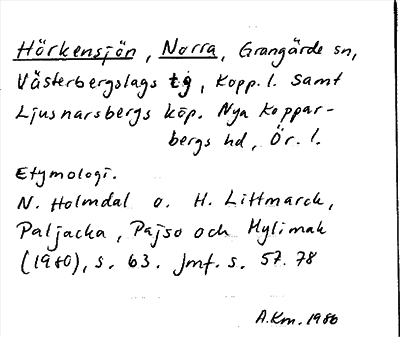 Hörkensjön, Norra, Grangärde sn,
Västerbergslags tg, Kopp. l. samt
Ljusnarsbergs köp. Nya Koppar-
bergs hd, Ör. l.
Etymologi.
N. Holmdal o. H. Littmarck,
Paljacka, Pajso och Mylimak
(1980), s. 63. Jmf. s. 57. 78
A.Km. 1986